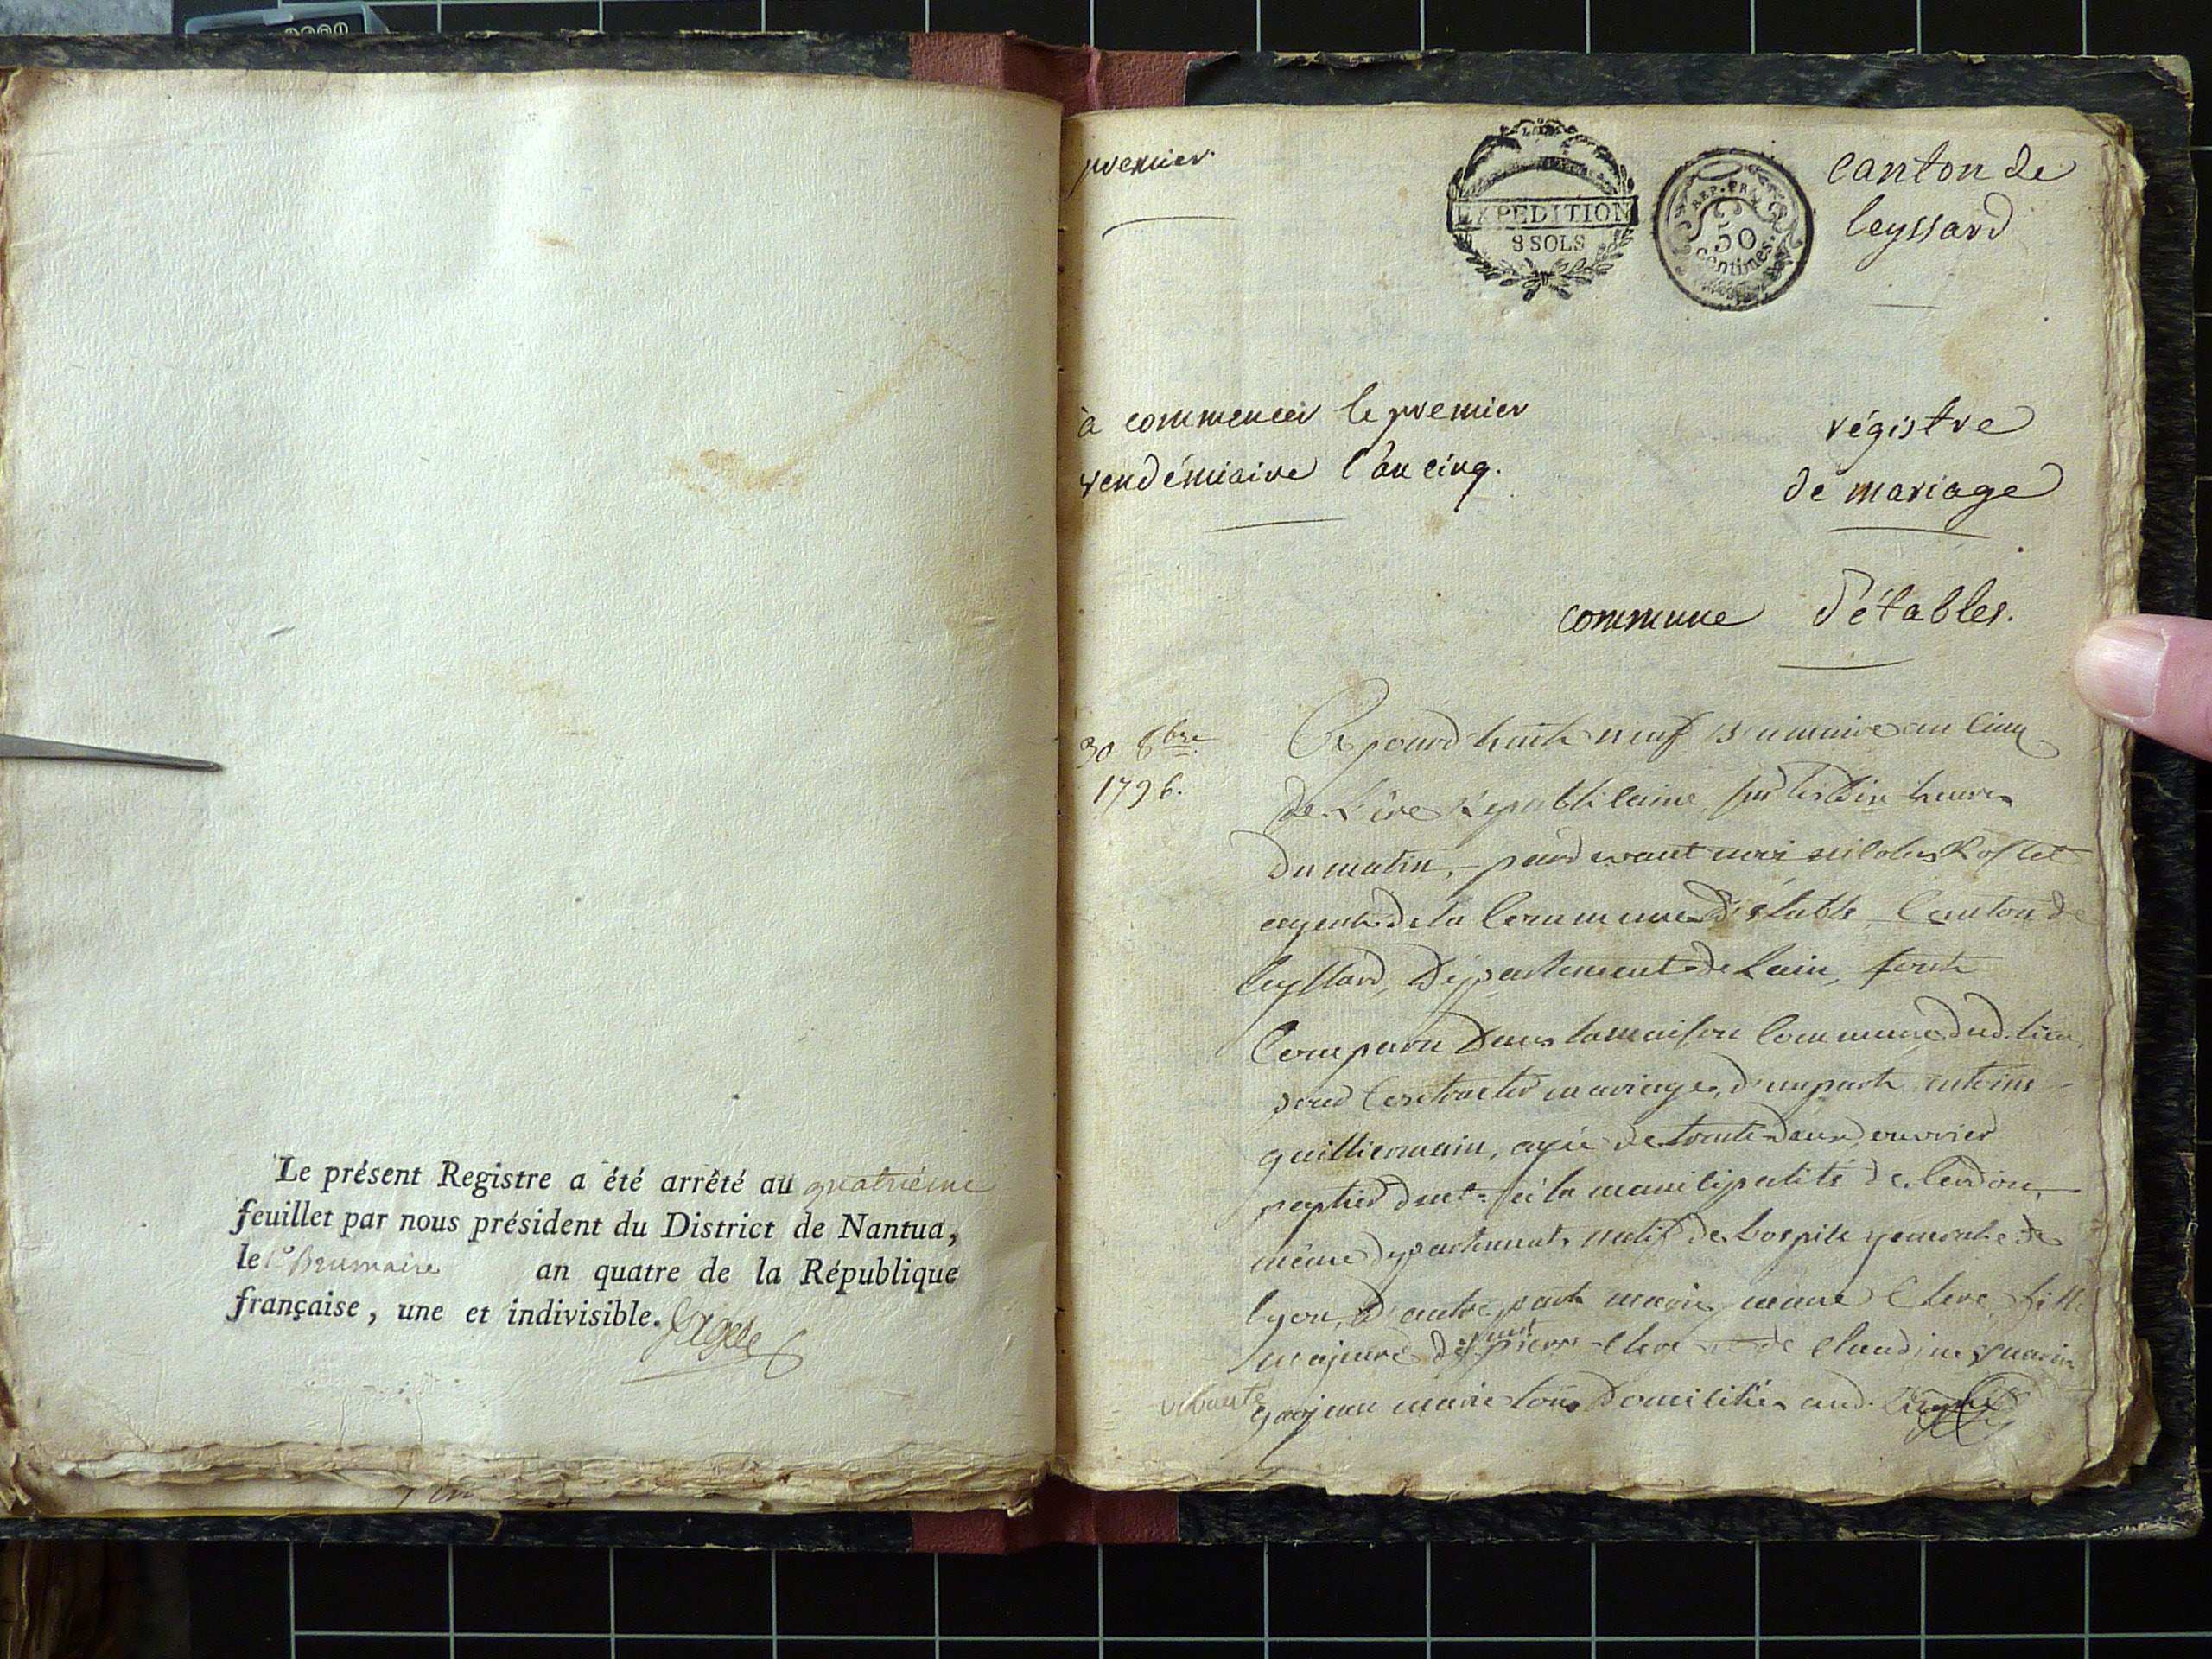 Le présent Registre a été arrêté au quatriéme
feuillet par nous président du District de Nantua,
le 1er Brumaire an quatre de la République
française, une et indivisible.
premier.
EXPEDITION
8 SOLS
REP. FRA
50
centimes.
canton de
leyssard
à commencer le premier
vendémiaire l'an cinq.
régistre
de mariage
commune d'étables.
30 8bre
1796.
neuf Brumaire an Cinq
de L'ère Républicaine, sur les dix heures
du matin, pardevant moi nicolas Rostet
agent de la Commune d'étable, Canton de
leyssard, Département de Lain, sont
Comparu dans la maison Commune dud. lieu,
pour Contracter mariage, d'unpart antoine
guilliermain, agé de trente deux ouvrier
papetier à la municipalité de Cerdon,
même département natif de hospite generale de
lyon, d'autre part marie Clere fille
majeure de pierre Clere et de Claudine
vivante
marie tous Domiciliés aud.